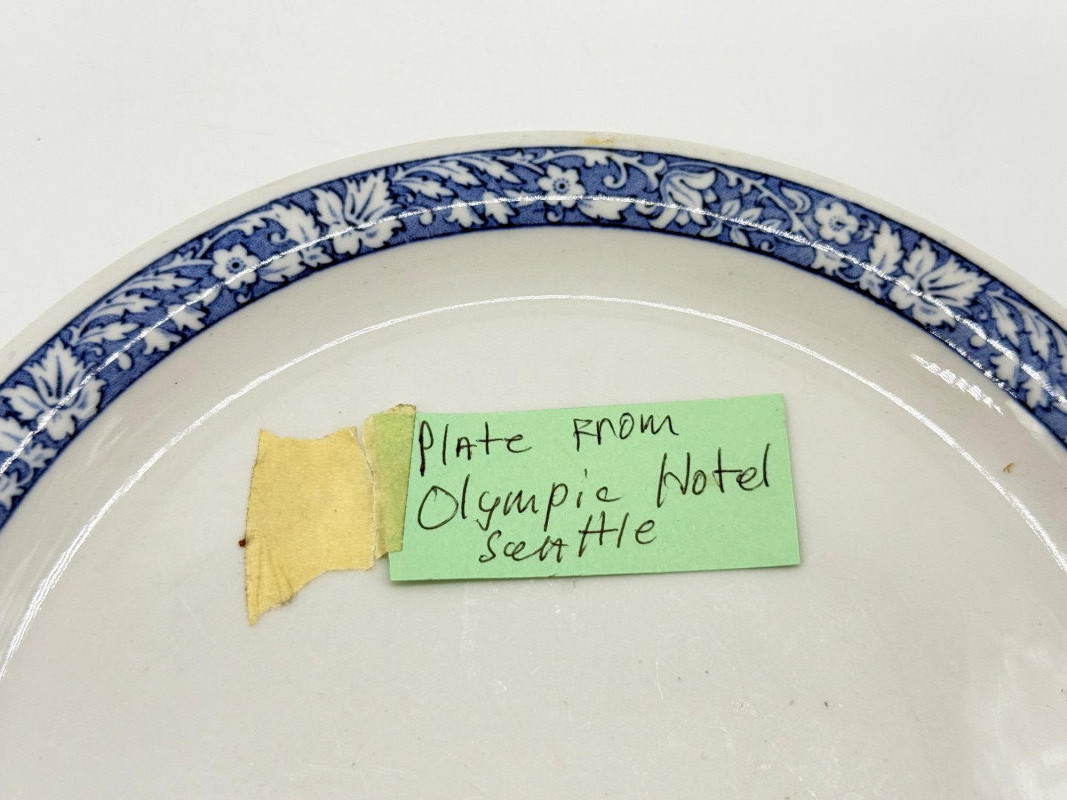 Plate From
Olympic Hotel
Seattle